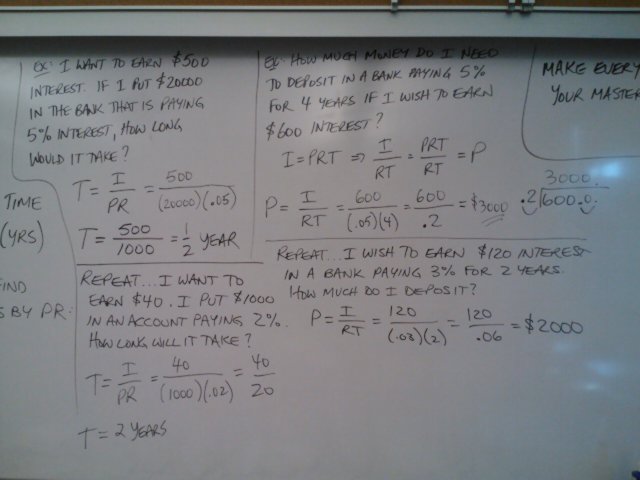 EX: I WANT TO EARN $500
INTEREST. IF I PUT $20000
IN THE BANK THAT IS PAYING
5% INTEREST, HOW LONG
WOULD IT TAKE?
T = I/PR = 500/(20000)(.05)
T = 500/1000 = 1/2 YEAR
REPEAT... I WANT TO
EARN $40. I PUT $1000
IN AN ACCOUNT PAYING 2%.
HOW LONG WILL IT TAKE?
T = I/PR = 40/(1000)(.02) = 40/20
T = 2 YEARS
EX: HOW MUCH MONEY DO I NEED
TO DEPOSIT IN A BANK PAYING 5%
FOR 4 YEARS IF I WISH TO EARN
$600 INTEREST?
I = PRT ⇒ I/RT = PRT/RT = P
P = I/RT = 600/(.05)(4) = 600/.2 = $3000
3000.
.2 600.0.
REPEAT... I WISH TO EARN $120 INTEREST
IN A BANK PAYING 3% FOR 2 YEARS.
HOW MUCH DO I DEPOSIT?
P = I/RT = 120/(.03)(2) = 120/.06 = $2000
TIME
(YRS)
BY PR:
MAKE EVERY
YOUR MASTER